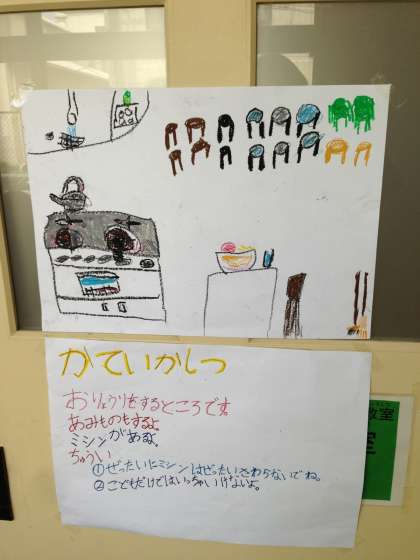 かていかしつ
おりょうりをするところです。
あみものもするよ。
ミシンがあるよ。
ちゅうい
①ぜったいにミシンはぜったいさわらないでね。
②こどもだけではいっちゃいけないよ。
室